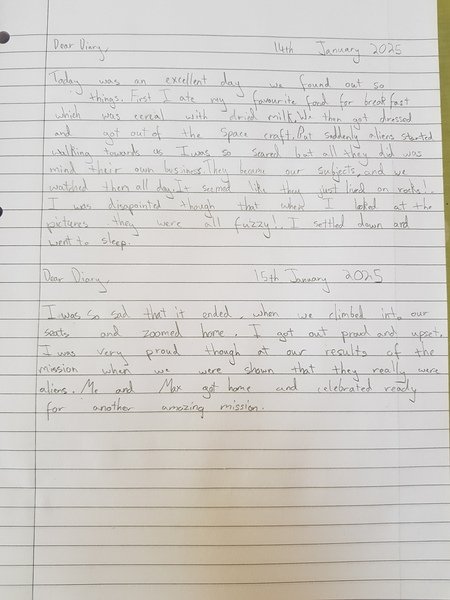 Dear Diary, 14th January 2025
Today was an excellent day we found out so
things. First I ate my favourite food for breakfast
which was cereal with dried milk. We then got dressed
and got out of the space craft. But suddenly aliens started
walking towards us I was so scared but all they did was
mind their own business. They became our subjects and we
watched them all day. It seemed like they just lived on rocks!.
I was disapointed though that when I looked at the
pictures they were all fuzzy!. I settled down and
went to sleep.
Dear Diary, 15th January 2025
I was so sad that it ended, when we climbed into our
seats and zoomed home. I got out proud and upset.
I was very proud though at our results of the
mission when we were shown that they really were
aliens. Me and Max got home and celebrated ready
for another amazing mission.